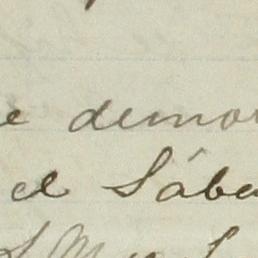 e demor
el Sába